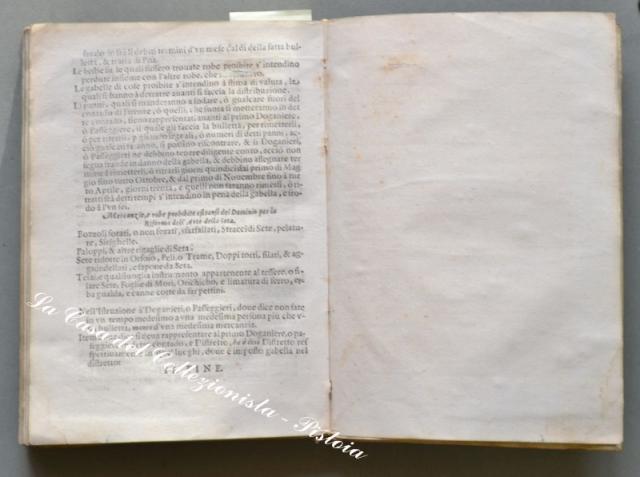 fendo in frà li debiti termini d'vn mese dal dì della fatta bul-
letta, & tratta di Pisa.
Le bestie sù le quali fussero trouate robe proibite s'intendino
perdute insieme con l'altre robe, che
Le gabelle di cose proibite s'intendino à stima di valuta, le
quali si hanno à detrarre auanti si faccia la distribuzione.
Li panni, quali si manderanno a sodare, ò gualcare fuori del
contado di Firenze, ò quelli, che
contado, sieno rappresentati auanti al primo Doganiere,
ò Passeggiere, il quale gli faccia la bulletta, per rimetterli,
ò numeri di detti panni, ac-
ciò quando tornano, si possino riscontrare, & li Doganieri,
ò Passeggieri ne debbino tener diligente conto, acciò non
segua fraude in danno della gabella, & debbino assegnare ter-
mine à rimetterli, ò ritrarli giorni quindici dal primo di Mag-
gio sino tutto Ottobre, & dal primo di Nouembre sino à tut-
to Aprile, giorni trenta, e quelli non saranno rimessi, ò ri-
tratti frà detti tempi s'intendino in pena della gabella, e fro-
do à l'vn sei.
Mercanzie, e robe prohibite estrarsi del Dominio per la
Riforma dell'Arte della Seta.
Bozzoli forati, o non forati, sfarfallati, Stracci di Sete, pelatu-
re, Sirighelle.
Paloppi, & altre rigaglie di Seta.
Sete ridotte in Orsoio, Peli, o Trame, Doppi torti, filati, & ag-
guindellati, e sapone da Seta.
Telai, e qualsiuoglia instrumento appartenente al tessere, o fi-
lare Sete, Foglie di Mori, Orichicho, e limatura di ferro, er-
ba gualda, e canne corte da farpettini.
Nell'Istruzione à Doganieri, o Passeggieri, doue dice non fate
in vn tempo medesimo a vna medesima persona più che v-
na bulletta, d'vna medesima mercanzia.
Item si deua rappresentare al primo Doganiere, o pas-
seggiere contado, e Distretto, Distretto res-
pettiuamente in luoghi, doue è imposto gabella nel
distretto.
IL FINE.
La Casa del Collezionista - Pistoia